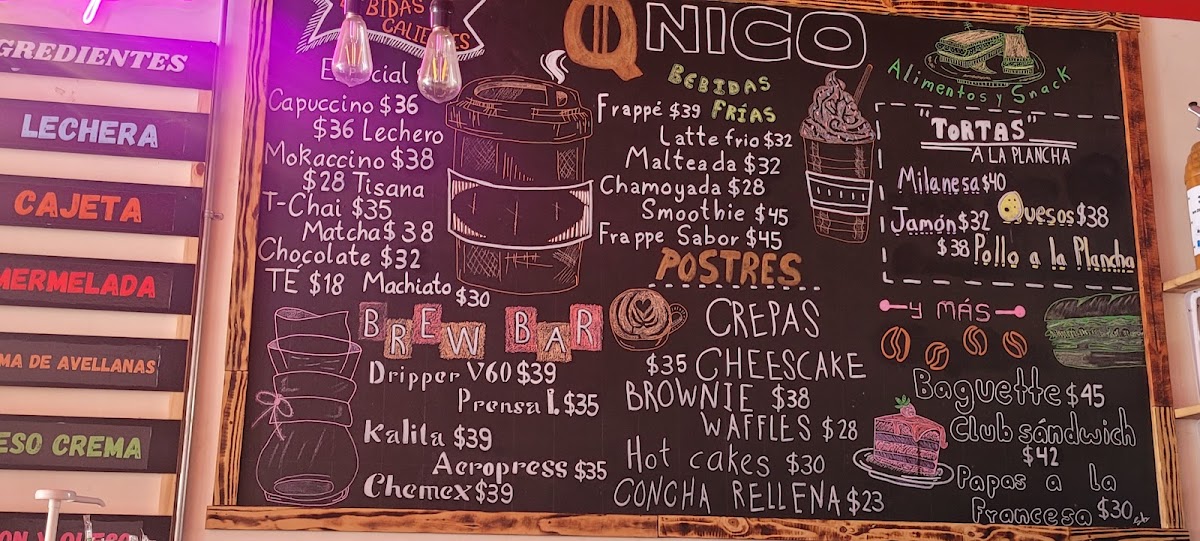 INGREDIENTES
LECHERA
CAJETA
MERMELADA
MA DE AVELLANAS
ESO CREMA
BEBIDAS
CALIENTES
Capuccino $36
$36 Lechero
Mokaccino $38
$28 Tisana
T-Chai $35
Matcha $38
Chocolate $32
TÉ $18 Machiato $30
BREW BAR
Dripper V60 $39
Prensa I. $35
Kalita $39
Aeropress $35
Chemex $39
QNICO
BEBIDAS
FRÍAS
Frappé $39
Latte frio $32
Malteada $32
Chamoyada $28
Smoothie $45
Frappe Sabor $45
POSTRES
CREPAS
$35 CHEESCAKE
BROWNIE $38
WAFFLES $28
Hot cakes $30
CONCHA RELLENA $23
Alimentos y Snack
"TORTAS"
A LA PLANCHA
Milanesa $40
Jamón $32 Quesos $38
$38 Pollo a la Plancha
Y MÁS
Baguette $45
Club sándwich
$42
Papas a la
Francesa $30